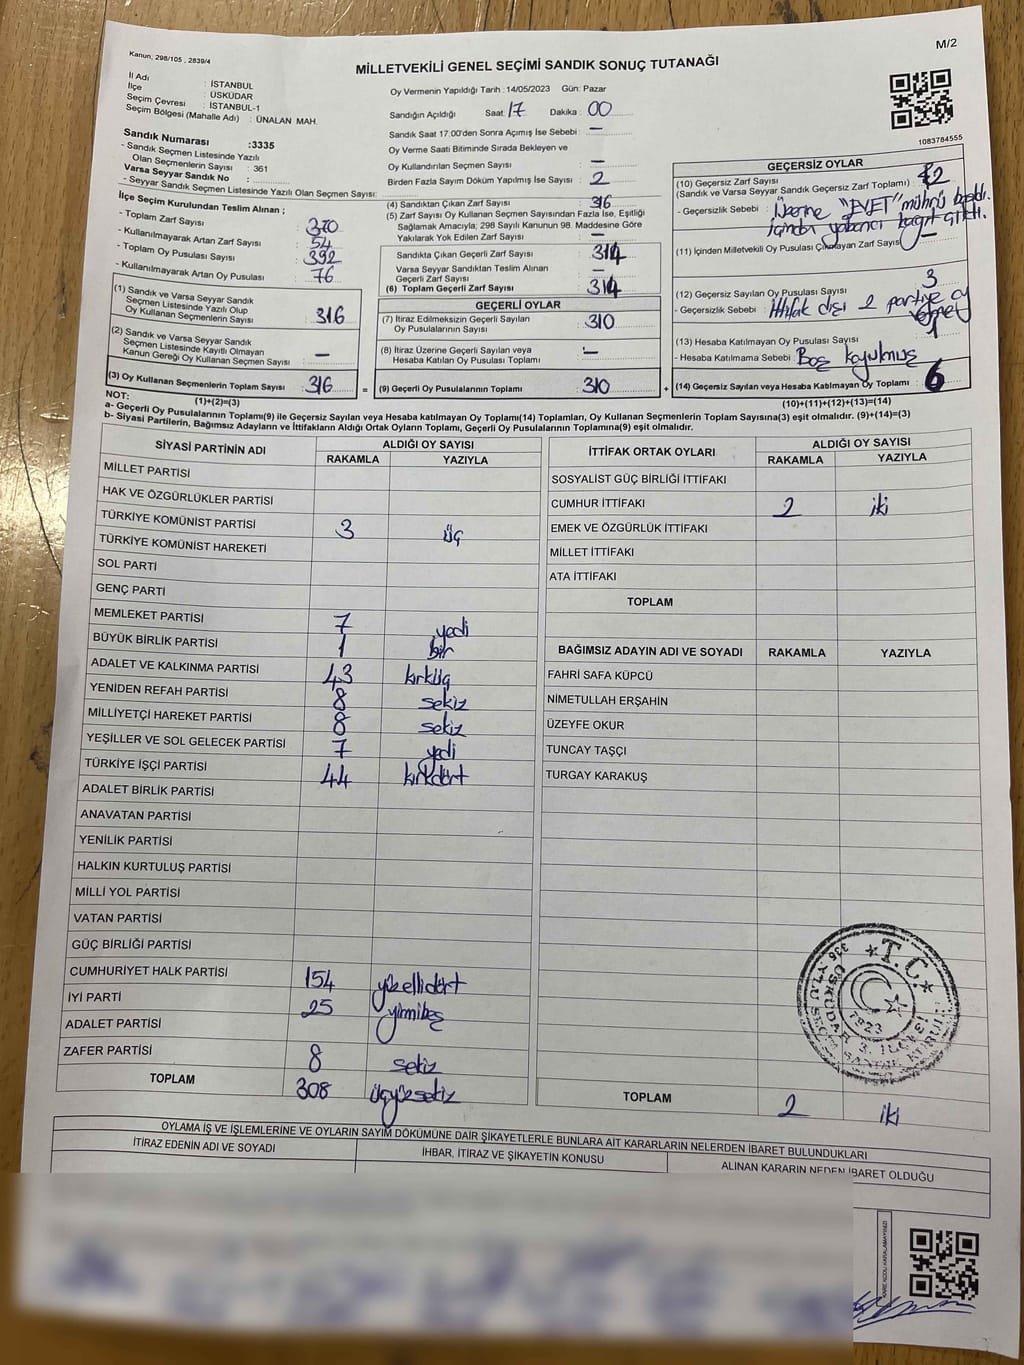 Kanun; 298/105 , 2839/4
M/2
MİLLETVEKİLİ GENEL SEÇİMİ SANDIK SONUÇ TUTANAĞI
İl Adı : İSTANBUL
İlçe : ÜSKÜDAR
Seçim Çevresi : İSTANBUL-1
Seçim Bölgesi (Mahalle Adı) : ÜNALAN MAH.
Sandık Numarası :3335
- Sandık Seçmen Listesinde Yazılı
Olan Seçmenlerin Sayısı : 361
Varsa Seyyar Sandık No :
- Seyyar Sandık Seçmen Listesinde Yazılı Olan Seçmen Sayısı:
İlçe Seçim Kurulundan Teslim Alınan ;
- Toplam Zarf Sayısı : 370
- Kullanılmayarak Artan Zarf Sayısı : 54
- Toplam Oy Pusulası Sayısı : 392
- Kullanılmayarak Artan Oy Pusulası : 76
(1) Sandık ve Varsa Seyyar Sandık
Seçmen Listesinde Yazılı Olup
Oy Kullanan Seçmenlerin Sayısı : 316
(2) Sandık ve Varsa Seyyar Sandık
Seçmen Listesinde Kayıtlı Olmayan
Kanun Gereği Oy Kullanan Seçmen Sayısı : —
(3) Oy Kullanan Seçmenlerin Toplam Sayısı : 316
(1)+(2)=(3)
Oy Vermenin Yapıldığı Tarih : 14/05/2023 Gün: Pazar
Sandığın Açıldığı Saat 17 Dakika : 00
Sandık Saat 17:00'den Sonra Açımış İse Sebebi : —
Oy Verme Saati Bitiminde Sırada Bekleyen ve
Oy Kullandırılan Seçmen Sayısı : —
Birden Fazla Sayım Döküm Yapılmış İse Sayısı : 2
(4) Sandıktan Çıkan Zarf Sayısı : 316
(5) Zarf Sayısı Oy Kullanan Seçmen Sayısından Fazla İse, Eşitliği
Sağlamak Amacıyla; 298 Sayılı Kanunun 98. Maddesine Göre
Yakılarak Yok Edilen Zarf Sayısı : —
Sandıkta Çıkan Geçerli Zarf Sayısı : 314
Varsa Seyyar Sandıktan Teslim Alınan
Geçerli Zarf Sayısı : —
(6) Toplam Geçerli Zarf Sayısı : 314
GEÇERLİ OYLAR
(7) İtiraz Edilmeksizin Geçerli Sayılan
Oy Pusulalarının Sayısı : 310
(8) İtiraz Üzerine Geçerli Sayılan veya
Hesaba Katılan Oy Pusulası Toplamı : —
= (9) Geçerli Oy Pusulalarının Toplamı : 310 +
1083784555
GEÇERSİZ OYLAR
(10) Geçersiz Zarf Sayısı : 2
(Sandık ve Varsa Seyyar Sandık Geçersiz Zarf Toplamı)
- Geçersizlik Sebebi : Üzerine "EVET" mührü basıldı.
İçinden yabancı kağıt çıktı.
(11) İçinden Milletvekili Oy Pusulası Çıkmayan Zarf Sayısı : —
(12) Geçersiz Sayılan Oy Pusulası Sayısı : 3
- Geçersizlik Sebebi : İttifak dışı 2 partiye oy
vermek
(13) Hesaba Katılmayan Oy Pusulası Sayısı : 1
- Hesaba Katılmama Sebebi : Boş koyulmuş
(14) Geçersiz Sayılan veya Hesaba Katılmayan Oy Toplamı : 6
(10)+(11)+(12)+(13)=(14)
NOT:
a- Geçerli Oy Pusulalarının Toplamı(9) ile Geçersiz Sayılan veya Hesaba katılmayan Oy Toplamı(14) Toplamları, Oy Kullanan Seçmenlerin Toplam Sayısına(3) eşit olmalıdır. (9)+(14)=(3)
b- Siyasi Partilerin, Bağımsız Adayların ve İttifakların Aldığı Ortak Oyların Toplamı, Geçerli Oy Pusulalarının Toplamına(9) eşit olmalıdır.
SİYASİ PARTİNİN ADI ALDIĞI OY SAYISI
RAKAMLA YAZIYLA
MİLLET PARTİSİ
HAK VE ÖZGÜRLÜKLER PARTİSİ
TÜRKİYE KOMÜNİST PARTİSİ 3 üç
TÜRKİYE KOMÜNİST HAREKETİ
SOL PARTİ
GENÇ PARTİ
MEMLEKET PARTİSİ 7 yedi
BÜYÜK BİRLİK PARTİSİ 1 bir
ADALET VE KALKINMA PARTİSİ 43 kırküç
YENİDEN REFAH PARTİSİ 8 sekiz
MİLLİYETÇİ HAREKET PARTİSİ 8 sekiz
YEŞİLLER VE SOL GELECEK PARTİSİ 7 yedi
TÜRKİYE İŞÇİ PARTİSİ 44 kırkdört
ADALET BİRLİK PARTİSİ
ANAVATAN PARTİSİ
YENİLİK PARTİSİ
HALKIN KURTULUŞ PARTİSİ
MİLLİ YOL PARTİSİ
VATAN PARTİSİ
GÜÇ BİRLİĞİ PARTİSİ
CUMHURİYET HALK PARTİSİ 154 yüzellidört
İYİ PARTİ 25 yirmibeş
ADALET PARTİSİ
ZAFER PARTİSİ 8 sekiz
TOPLAM 308 üçyüzsekiz
İTTİFAK ORTAK OYLARI ALDIĞI OY SAYISI
RAKAMLA YAZIYLA
SOSYALİST GÜÇ BİRLİĞİ İTTİFAKI
CUMHUR İTTİFAKI 2 iki
EMEK VE ÖZGÜRLÜK İTTİFAKI
MİLLET İTTİFAKI
ATA İTTİFAKI
TOPLAM
BAĞIMSIZ ADAYIN ADI VE SOYADI RAKAMLA YAZIYLA
FAHRİ SAFA KÜPCÜ
NİMETULLAH ERŞAHİN
ÜZEYFE OKUR
TUNCAY TAŞÇI
TURGAY KARAKUŞ
★T.C★
1923
TOPLAM 2 iki
OYLAMA İŞ VE İŞLEMLERİNE VE OYLARIN SAYIM DÖKÜMÜNE DAİR ŞİKAYETLERLE BUNLARA AİT KARARLARIN NELERDEN İBARET BULUNDUKLARI
İTİRAZ EDENİN ADI VE SOYADI İHBAR, İTİRAZ VE ŞİKAYETİN KONUSU ALINAN KARARIN NEDEN İBARET OLDUĞU
KARE KODU KARALAMAYINIZ!